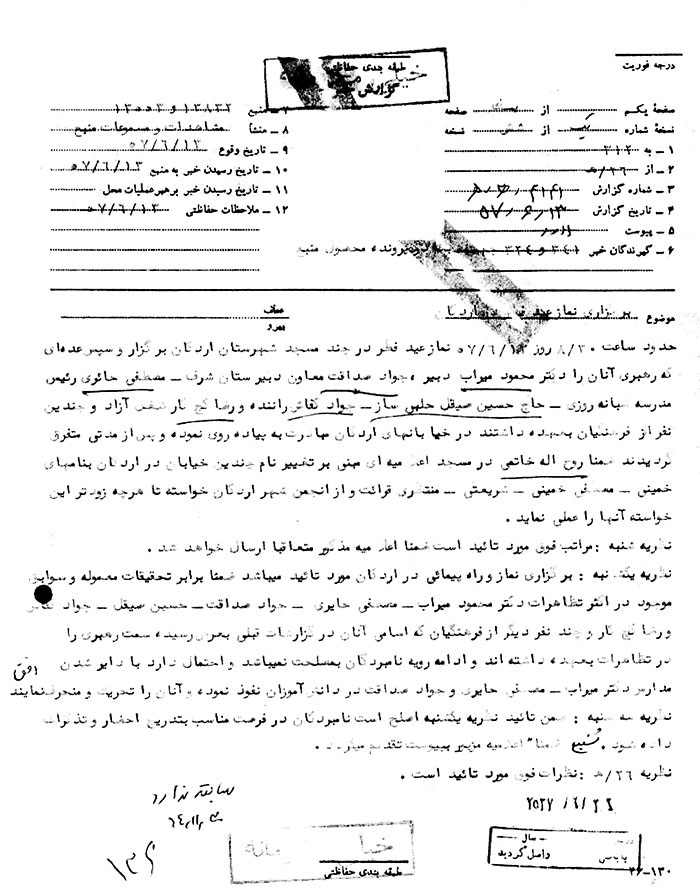 درجه فوریت
طبقه بندی حفاظتی
خیلی
گزارش خبر
صفحه یکم از صفحه
نسخه شماره یک از شش نسخه
۱ ـ به ۳۱۲
۲ ـ از ۲۶/ه
۳ ـ شماره گزارش
۴ ـ تاریخ گزارش
۵ ـ پیوست
۶ ـ گیرندگان خبر
پرونده محصول منبع
۷ ـ منبع
۸ ـ منشأ مشاهدات و مسموعات منبع
۹ ـ تاریخ وقوع ۵۷/۶/۱۳
۱۰ ـ تاریخ رسیدن خبر به منبع ۵۷/۶/۱۳
۱۱ ـ تاریخ رسیدن خبر برهبر عملیات محل
۱۲ ـ ملاحظات حفاظتی ۵۷/۶/۱۳
موضوع برگزاری نماز عید فطر در اردکان
عطف
پیرو
حدود ساعت ۸/۳۰ روز ۵۷/۶/۱۳ نماز عید فطر در چند مسجد شهرستان اردکان برگزار و سپس عده‌ای
که رهبری آنان را دکتر محمود میراب دبیر ، جواد صداقت معاون دبیرستان شرف ـ مصطفی حائری رئیس
مدرسه شبانه روزی ـ حاج حسین صیقل حلبی ساز ـ جواد کفاش راننده و رضا گچ کار شغل آزاد و چندین
نفر از فرهنگیان بعهده داشتند در خیابانهای اردکان مبادرت به پیاده روی نموده و پس از مدتی متفرق
گردیدند ضمنا روح اله خاتمی در مسجد اعلامیه ای مبنی بر تغییر نام چندین خیابان در اردکان بنامهای
خمینی ـ مصطفی خمینی ـ شریعتی ـ منتظری قرائت و از انجمن شهر اردکان خواسته تا هرچه زودتر این
خواسته آنها را عملی نماید .
نظریه شنبه : مراتب فوق مورد تائید است ضمنا اعلامیه مذکور متعاقبا ارسال خواهد شد .
نظریه یکشنبه : برگزاری نماز و راه پیمائی در اردکان مورد تائید میباشد ضمنا برابر تحقیقات معموله و سوابق
موجود در اکثر تظاهرات دکتر محمود میراب ـ مصطفی حایری ـ جواد صداقت ـ حسین صیقل ـ جواد کفاش
و رضا گچ کار و چند نفر دیگر از فرهنگیان که اسامی آنان در گزارشات قبلی بعرض رسیده سمت رهبری را
در تظاهرات بعهده داشته اند و ادامه رویه نامبردگان بمصلحت نمیباشد و احتمال دارد با دایر شدن
مدارس دکتر میراب ـ مصطفی حایری و جواد صداقت در دانش آموزان نفوذ نموده و آنان را تحریک و منحرف نمایند
افق
نظریه سه شنبه : ضمن تائید نظریه یکشنبه اصلح است نامبردگان در فرصت مناسب بتدریج احضار و تذکرات
داده شود . ضمنا اعلامیه مزبور بپیوست تقدیم میگردد .
نظریه ۲۶/ه : نظرات فوق مورد تائید است .
سابقه ندارد
۱۳۶
خیلی محرمانه
طبقه بندی حفاظتی
سال
بایگانی
واصل گردید
۳۶-۱۳۰